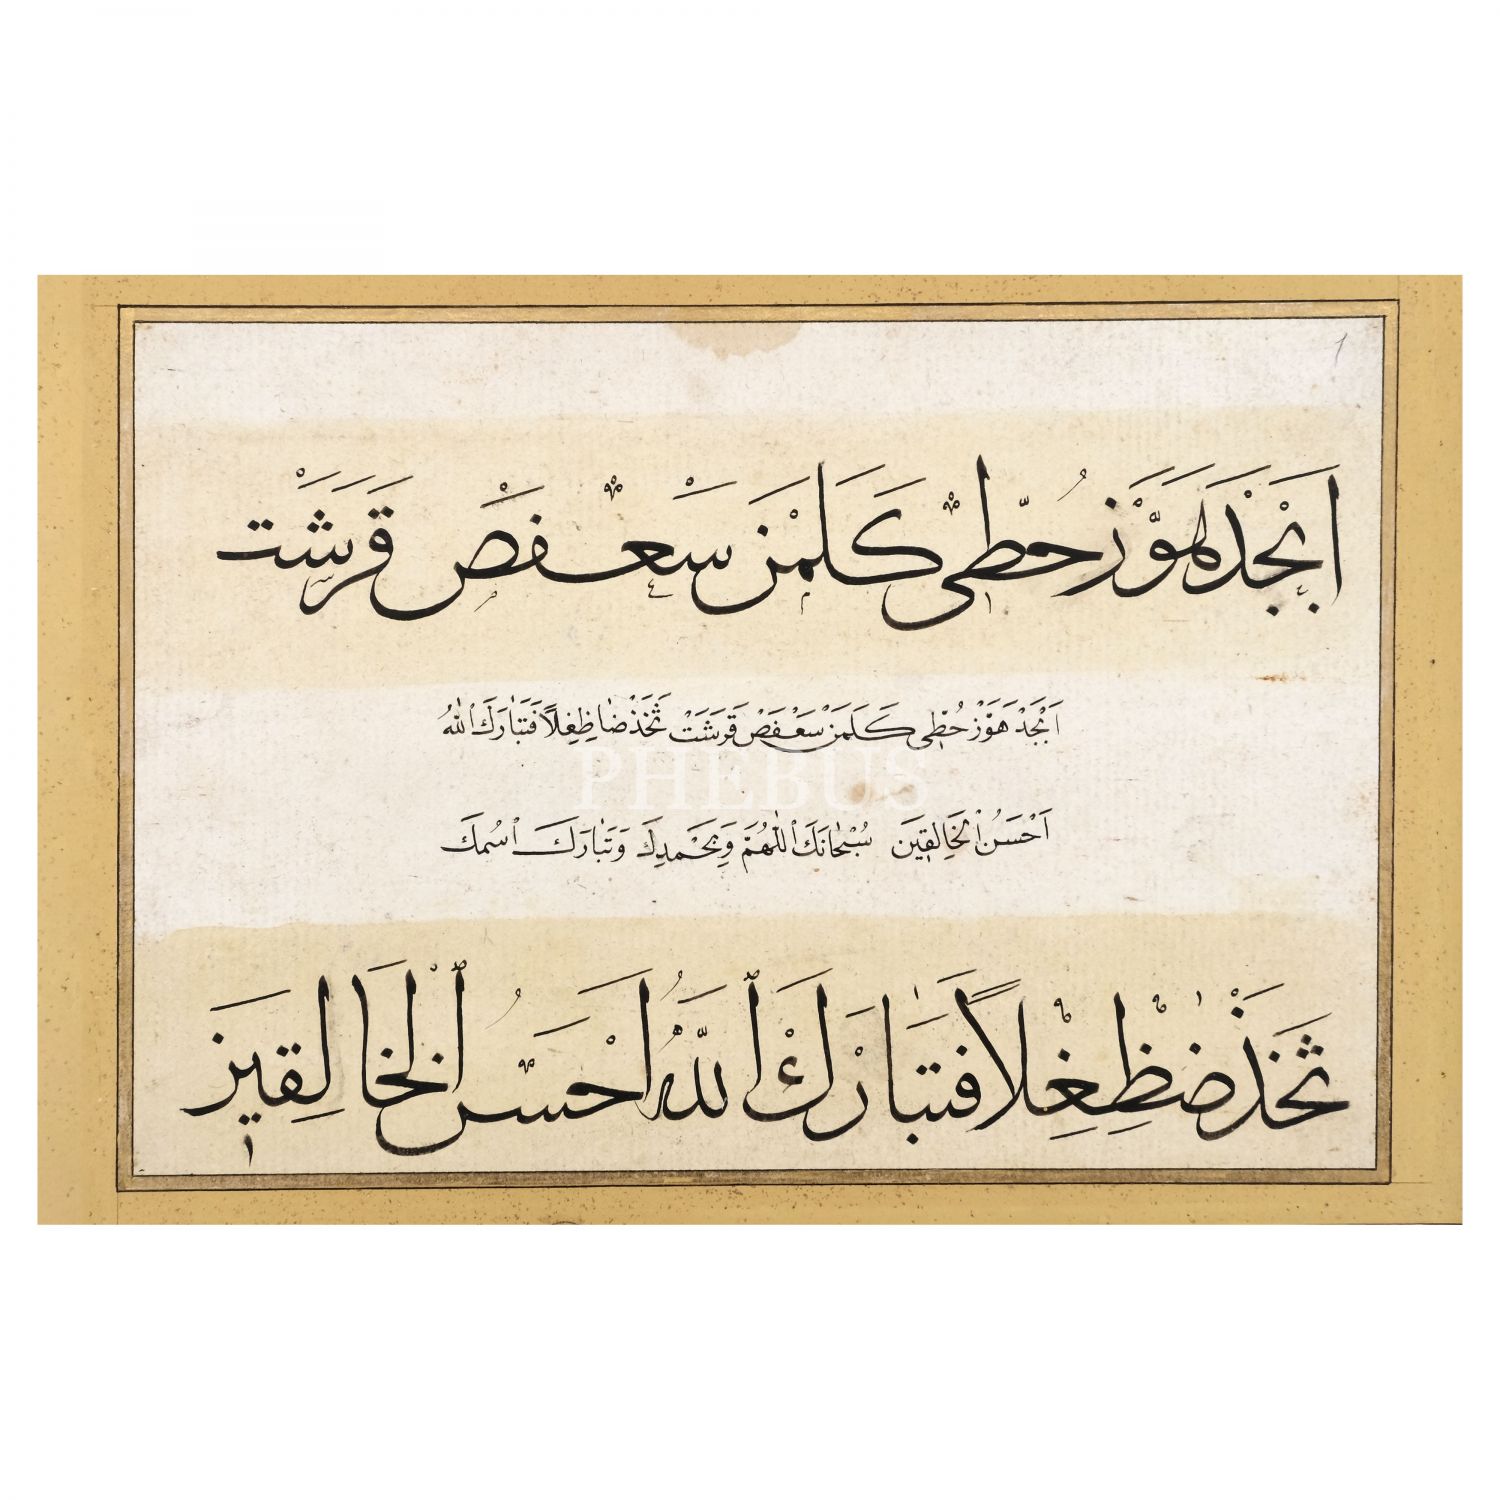 ١
اَبْجَدْ هَوَّزْ حُطِّى كَلَمَنْ سَعْفَصْ قَرَشَتْ
اَبْجَدْ هَوَّزْ حُطِّى كَلَمَنْ سَعْفَصْ قَرَشَتْ ثَخَذْ ضَاظِغِلاً فَتَبَارَكَ اللّٰهُ
PHEBUS
اَحْسَنُ الْخَالِقِينَ سُبْحَانَكَ اللّٰهُمَّ وَبِحَمْدِكَ وَتَبَارَكَ اسْمُكَ
ثَخَذْ ضَظِغْلاً فَتَبَارَكَ اللّٰهُ اَحْسَنُ الْخَالِقِينَ